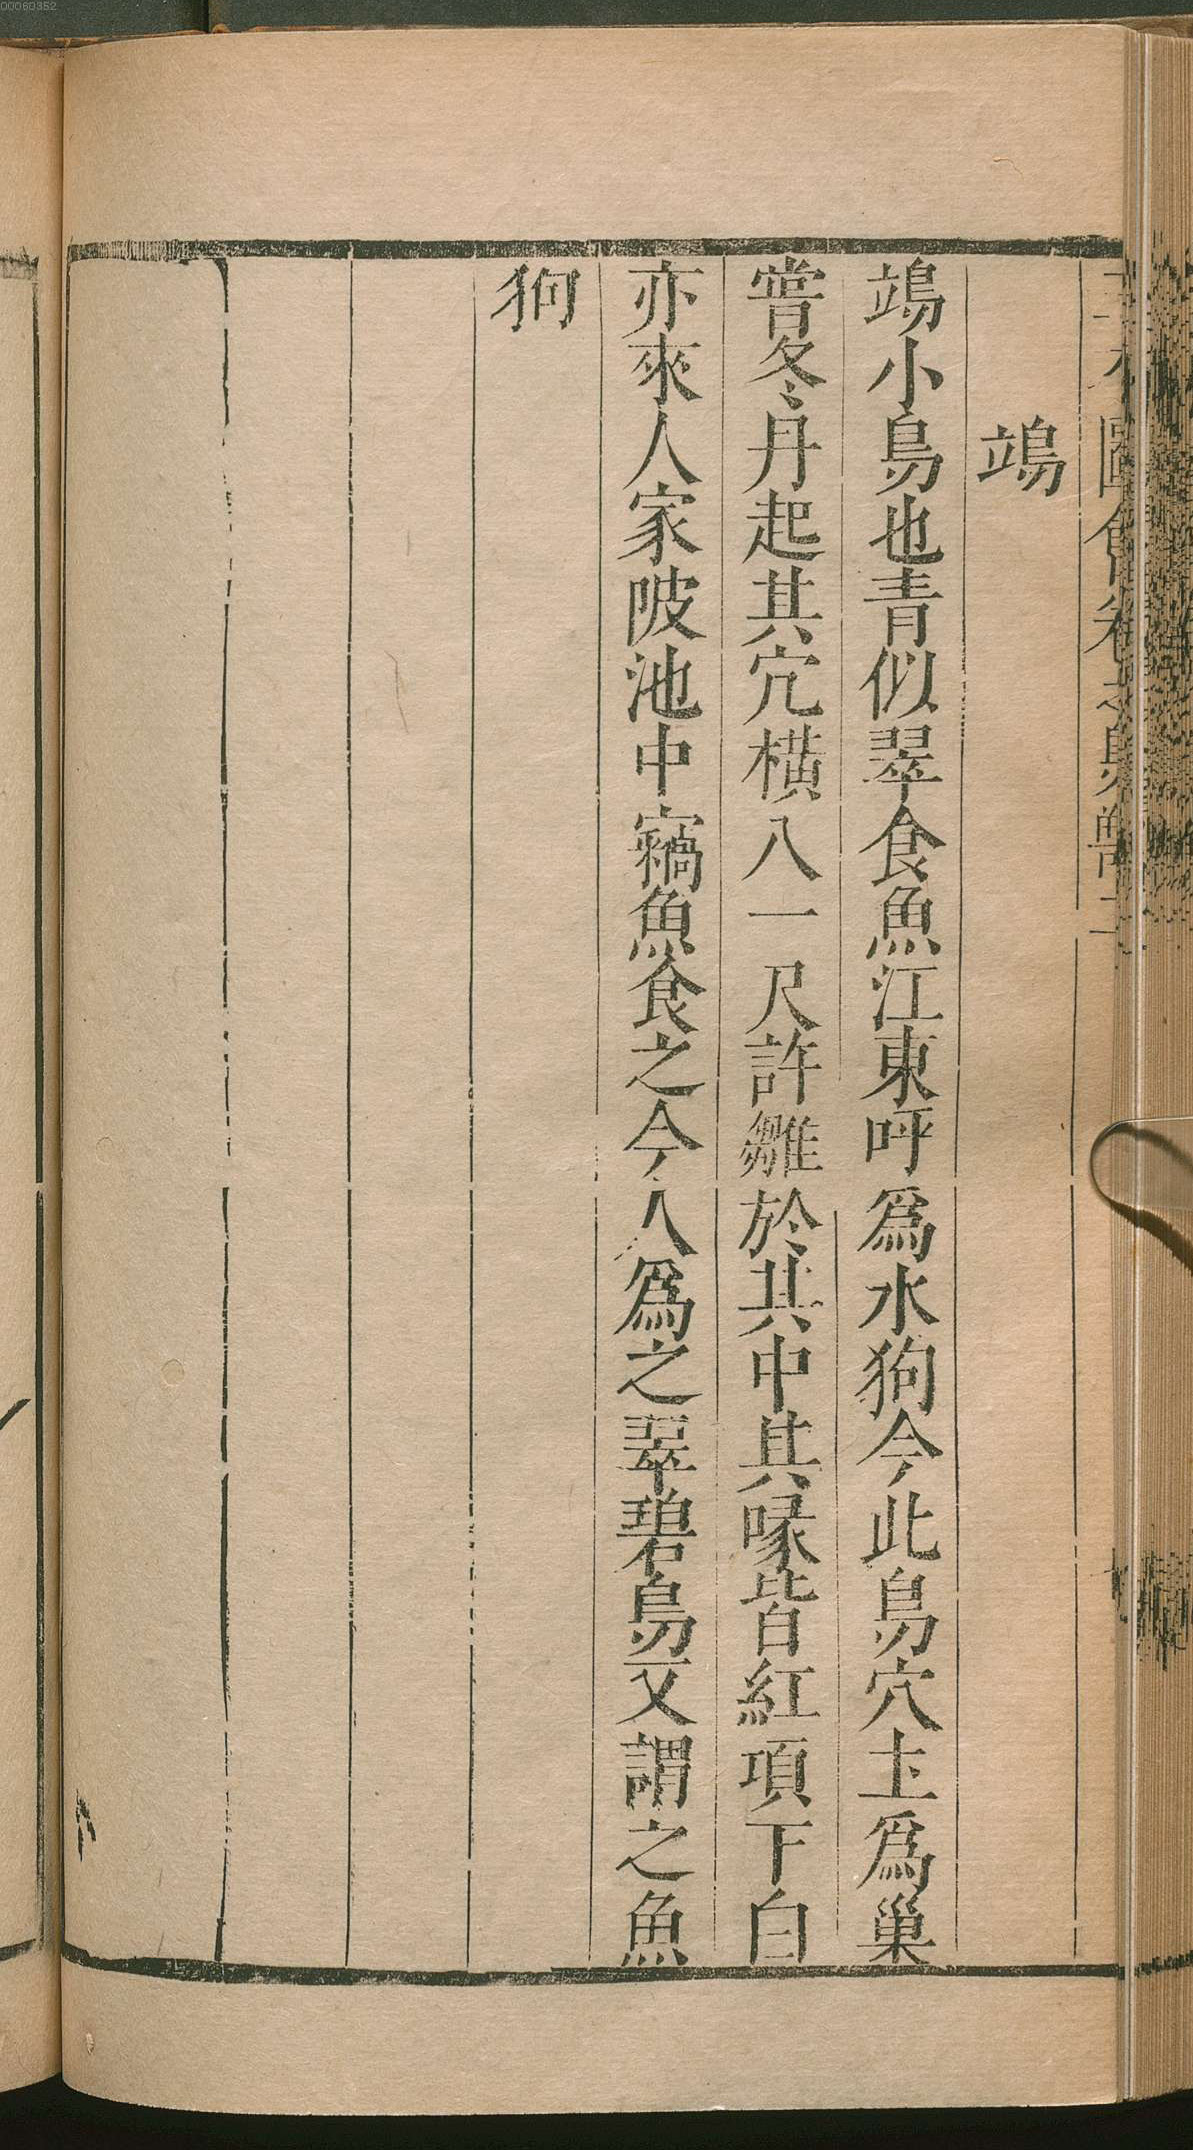 00060352
圖會卷之鳥獸二
鴗
鴗小鳥也青似翠食魚江東呼爲水狗今此鳥穴圡爲巢
嘗冬丹起其宂橫八一尺許雛於其中其喙皆紅項下白
亦來人家陂池中竊魚食之今人爲之翠碧鳥又謂之魚
狗